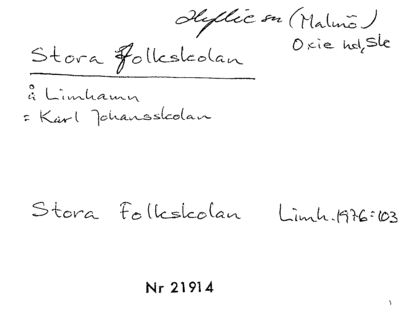 Hyllie sn (Malmö)
Oxie hd, Sk
Stora Folkskolan
å Limhamn
= Karl Johansskolan
Stora Folkskolan Limh. 1976:103
Nr 21914